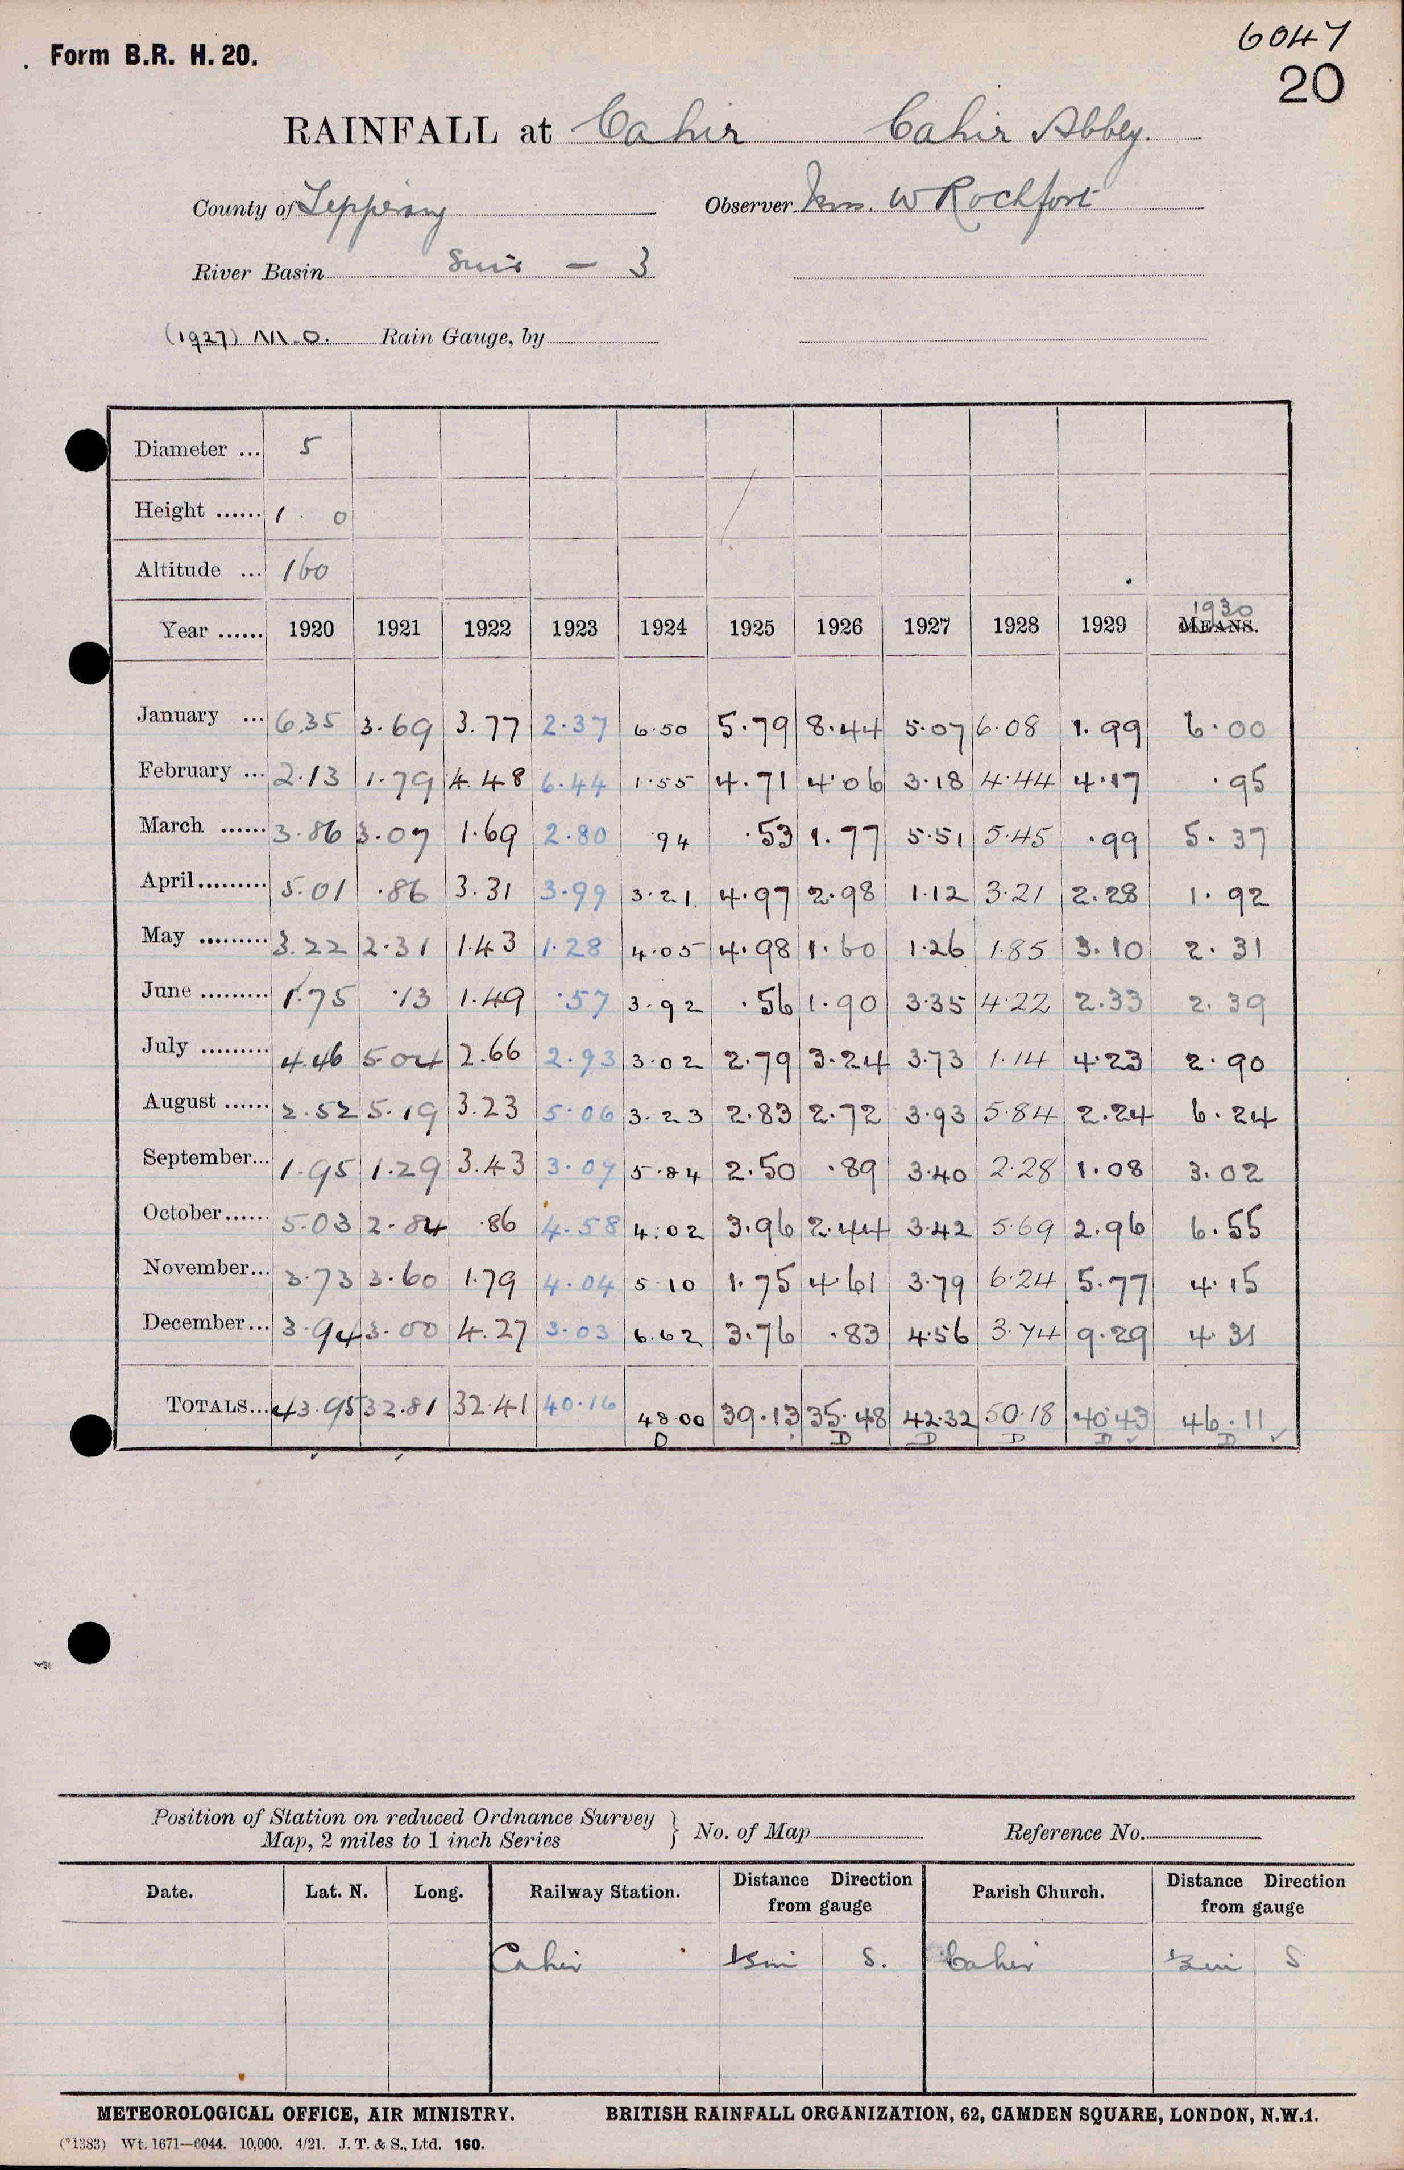 Form B.R. H. 20.
6047
20
RAINFALL at Cahir Cahir Abbey.
County of Tipperary Observer Mrs. W Rochfort
River Basin Suir - 3
(1927) M.O. Rain Gauge, by
Diameter ... 5
Height ...... 1 0
Altitude ... 160
1930
Year ...... 1920 1921 1922 1923 1924 1925 1926 1927 1928 1929 MEANS.
January ... 6.35 3.69 3.77 2.37 6.50 5.79 8.44 5.07 6.08 1.99 6.00
February ... 2.13 1.79 4.48 6.44 1.55 4.71 4.06 3.18 4.44 4.17 .95
March ...... 3.86 3.07 1.69 2.80 .94 .53 1.77 5.51 5.45 .99 5.37
April......... 5.01 .86 3.31 3.99 3.21 4.97 2.98 1.12 3.21 2.28 1.92
May ......... 3.22 2.31 1.43 1.28 4.05 4.98 1.60 1.26 1.85 3.10 2.31
June ......... 1.75 .13 1.49 .57 3.92 .56 1.90 3.35 4.22 2.33 2.39
July ......... 4.46 5.04 2.66 2.93 3.02 2.79 3.24 3.73 1.14 4.23 2.90
August ...... 2.52 5.19 3.23 5.06 3.23 2.83 2.72 3.93 5.84 2.24 6.24
September... 1.95 1.29 3.43 3.07 5.84 2.50 .89 3.40 2.28 1.08 3.02
October...... 5.03 2.84 .86 4.58 4.02 3.96 2.44 3.42 5.69 2.96 6.55
November... 3.73 3.60 1.79 4.04 5.10 1.75 4.61 3.79 6.24 5.77 4.15
December... 3.94 3.00 4.27 3.03 6.62 3.76 .83 4.56 3.74 9.29 4.31
TOTALS... 43.95 32.81 32.41 40.16 48.00 39.13 35.48 42.32 50.18 40.43 46.11
D D D D D D
Position of Station on reduced Ordnance Survey
Map, 2 miles to 1 inch Series } No. of Map Reference No.
Date. Lat. N. Long. Railway Station. Distance Direction from gauge Parish Church. Distance Direction from gauge
Cahir ½mi S. Cahir ½mi S
METEOROLOGICAL OFFICE, AIR MINISTRY. BRITISH RAINFALL ORGANIZATION, 62, CAMDEN SQUARE, LONDON, N.W.1.
(*1383) Wt. 1671—6044. 10,000. 4/21. J. T. & S., Ltd. 160.